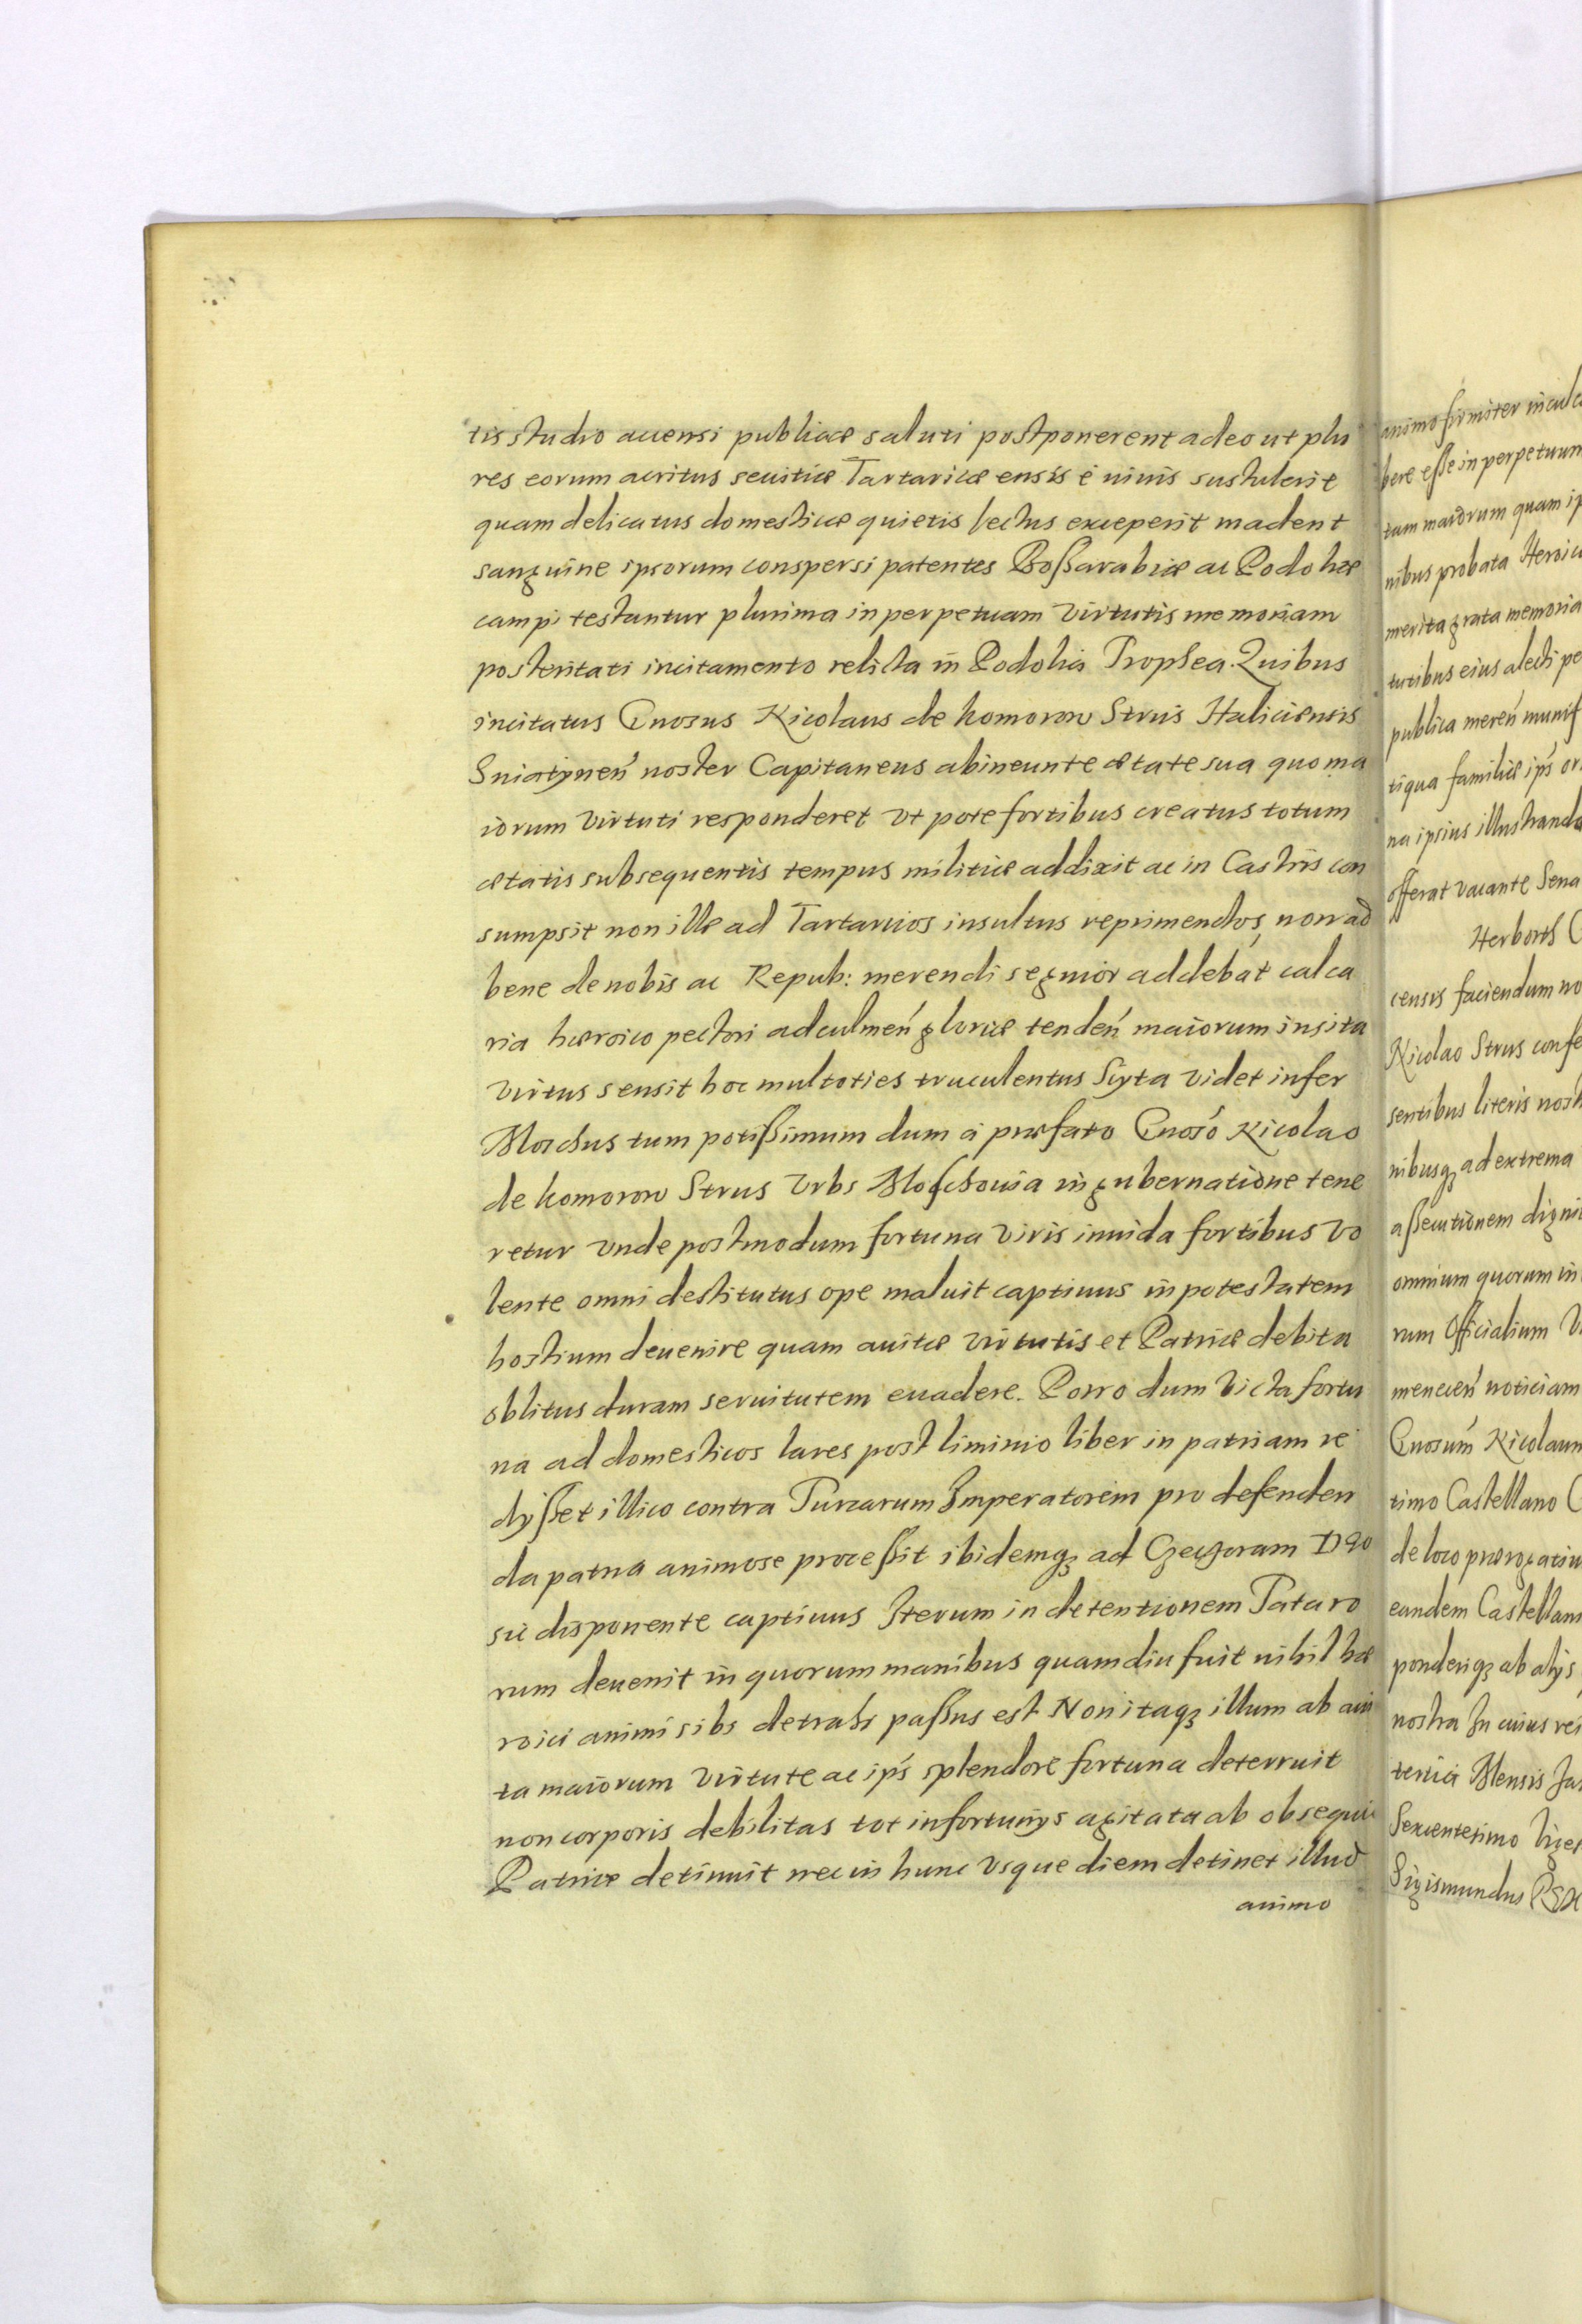 tis studio accensi publicæ saluti postponerent adeo ut plu
res eorum acritus seuitiæ Tartaricæ ensis è uiuis sustulerit
quam delicatus domesticæ quietis lectus exceperit madent
sanguine ipsorum conspersi patentes Boßarabiæ ac Podoliæ
campi testantur plurima in perpetuam Virtutis memoriam
posteritati incitamento relicta in Podolia Trophea. Quibus
incitatus Gnosus Nicolaus de komorow Strus Haliciensis
Sniatyneń noster Capitaneus abineunte ætate sua quo ma
iorum Virtuti responderet Vt pote fortibus creatus totum
ætatis subsequentis tempus militiæ addixit ac in Castris con
sumpsit non ille ad Tartaricos insultus reprimendos, non ad
bene de nobis ac Repub: merendi segnior addebat calca
ria hæroico pectori ad culmeń gloriæ tendeń maiorum insita
Virtus sensit hoc multoties truculentus Scyta Videt infer
Moschus tum potißimum dum à præfato Gnosó Nicolao
de komorow Strus Vrbs Moschouia in gubernatione tene
retur Vnde postmodum fortuna Viris inuida fortibus Vo
lente omni destitutus ope maluit captiuus in potestatem
hostium deuenire quam auitæ Virtutis et Patriæ debita
oblitus duram seruitutem euadere. Porro dum Victa fortu
na ad domesticos lares post liminio liber in patriam re
dijßet illico contra Turcarum Imperatorem pro defenden
da patria animose proceßit ibidemqз ad Czeczoram Dẽo
sic disponente captiuus Iterum in detentionem Tataro
rum deuenit in quorum manibus quamdiu fuit nihil hæ
roici animi sibi detrahi paßus est Non itaqз illum ab aui
ta maiorum Virtute ac ips splendore fortuna deterruit
non corporis debilitas tot infortunijs agitata ab obsequii
Patriæ detinuit nec in hunc Vsque diem detinet illud
animo
animo firmiter inculc
bere eße in perpetuum
tam maiorum quam ip
nibus probata Heroic
merita grata memoria
tutibus eius alecti pe
publica mereń munif
tiqua familiæ ips or
na ipsius illustranda
offerat vacante Sena
Herborth C
censis faciendum no
Nicolao Strus confe
sentibus literis nostr
nibusqз ad extrema
aßecutionem digni
omnium quorum in
rum Officialium V
meneceń noticiam
Gnosum Nicolaum
timo Castellano C
de loco prærogatiu
eandem Castellan
ponderiqз ab alijs
nostra In cuius rei
tertia Mensis Ja
Sexcentesimo Viges
Sigismundus